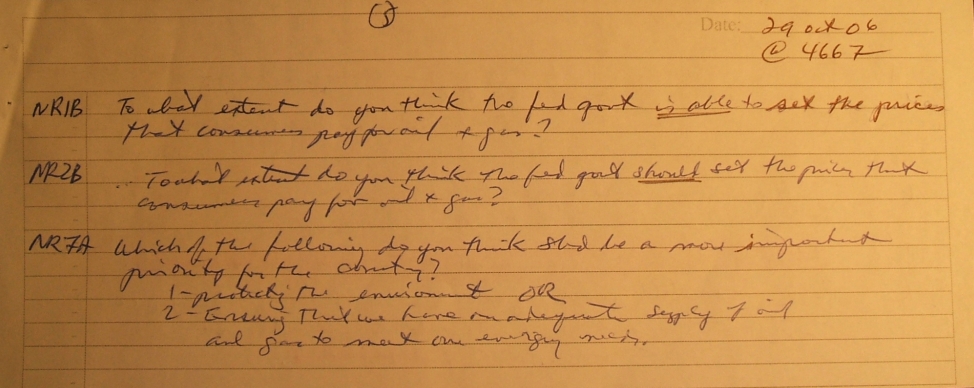 (3)
Date: 29 oct 06
@ 4667
NR1B To what extent do you think the fed govt is able to set the prices
that consumers pay for oil + gas?
NR2B To what extent do you think the fed govt should set the prices that
consumers pay for oil + gas?
NR7A Which of the following do you think shd be a more important
priority for the country?
1- protecting the environment OR
2- Ensuring that we have an adequate supply of oil
and gas to meet our energy needs.